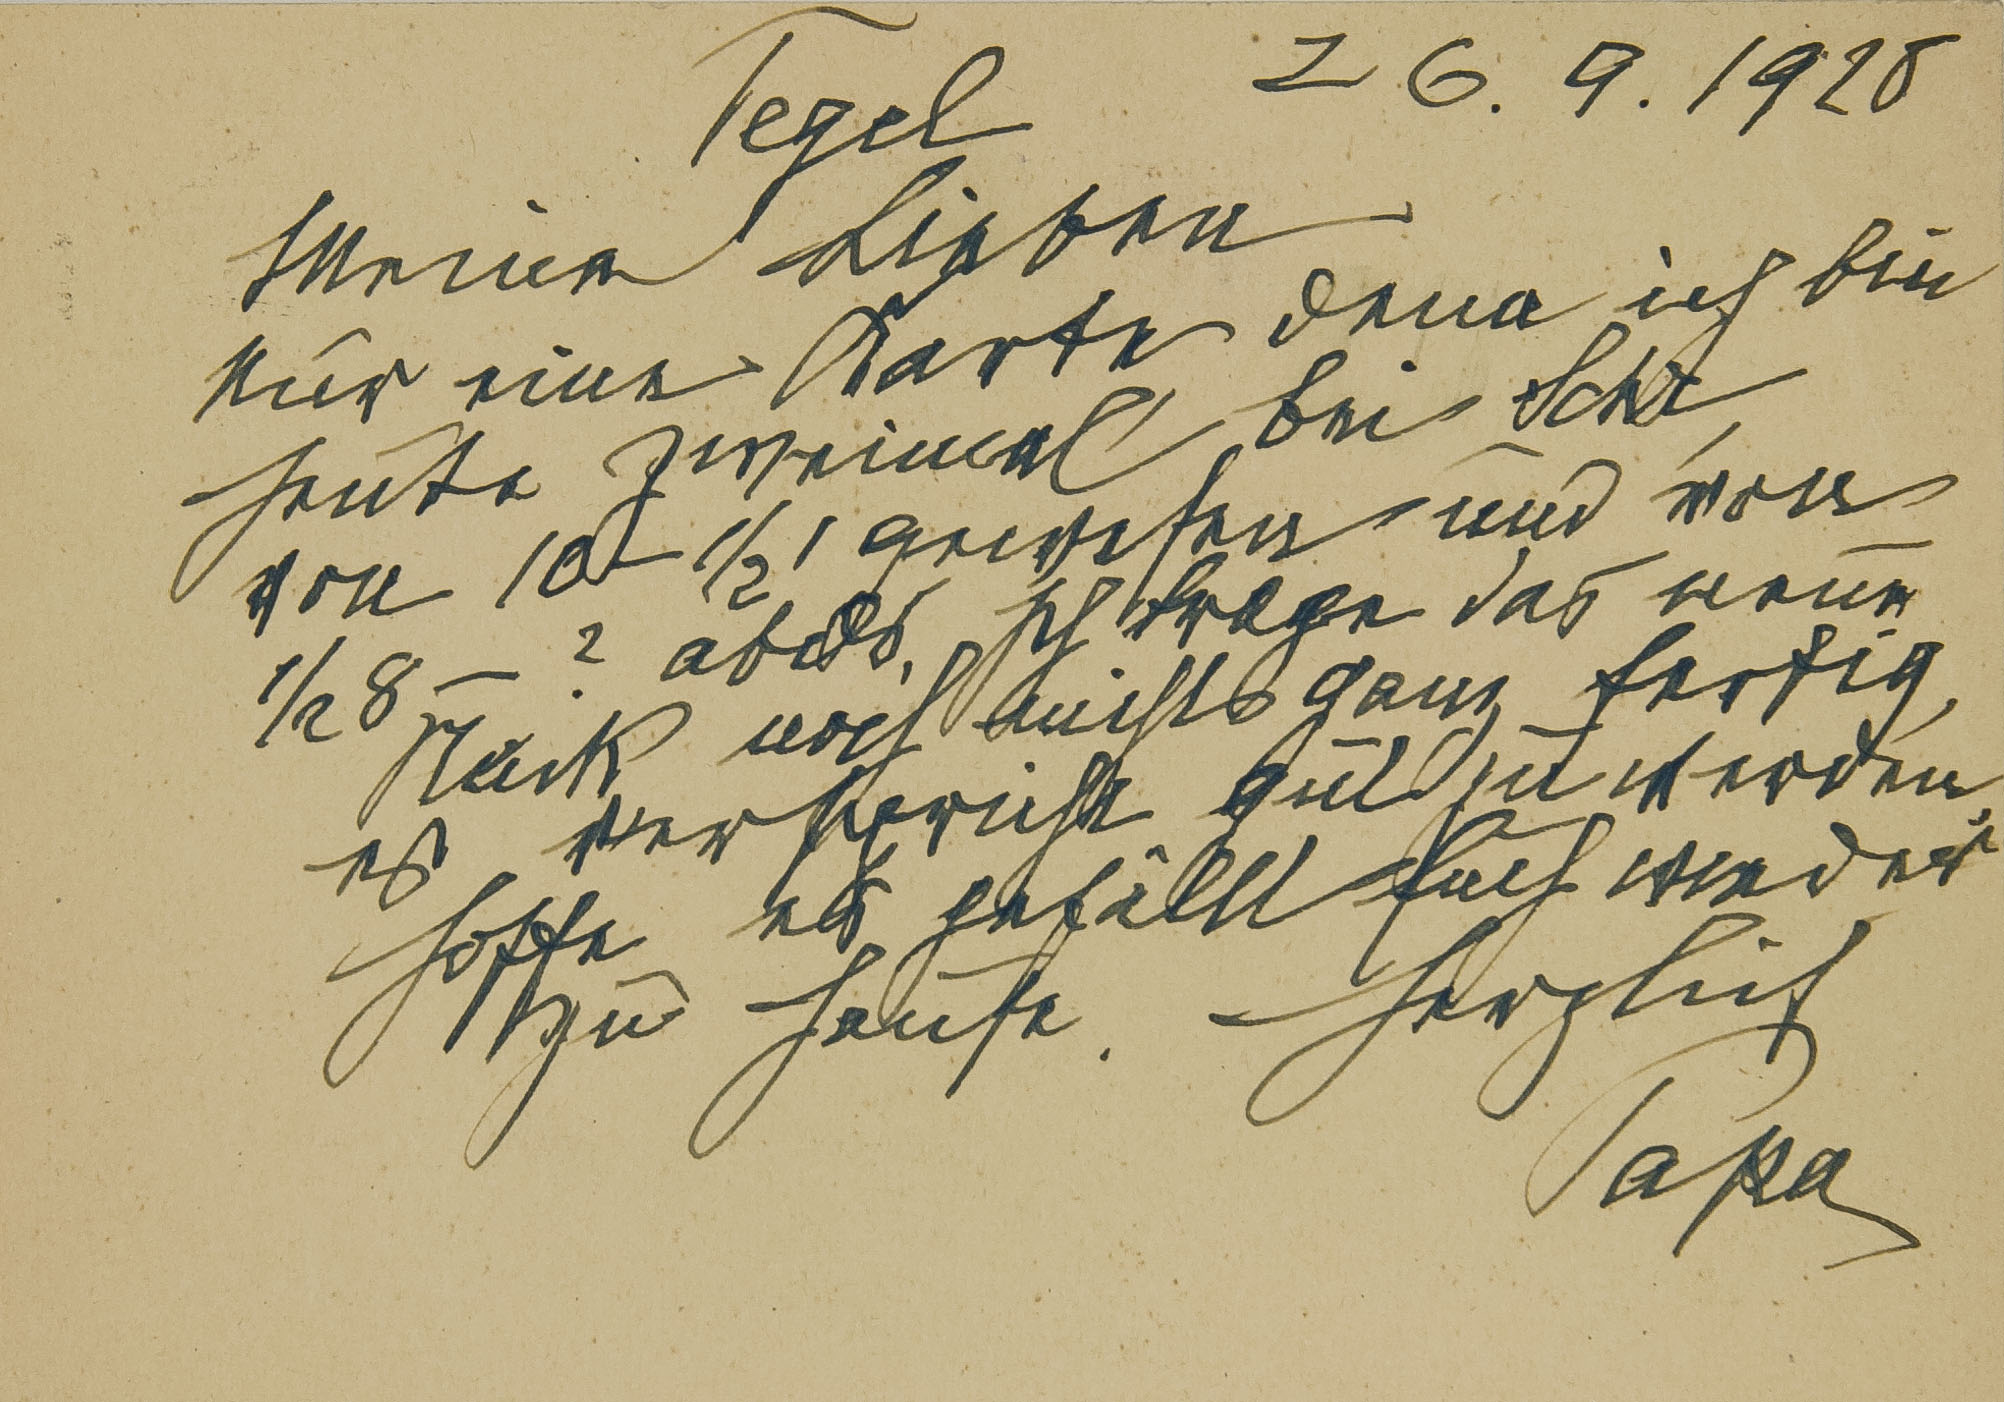 Tegel 26.9.1928
Meine Lieben
nur eine Karte denn ich bin
heute zweimal bei Schr
von 10 – 1/2 1 gewesen und von
1/2 8 – ? abds. Ich trage das neue
Stück noch nicht ganz fertig,
es verspricht gut zu werden.
hoffe es gefällt Euch wieder
zu Hause. Herzlich
Papa